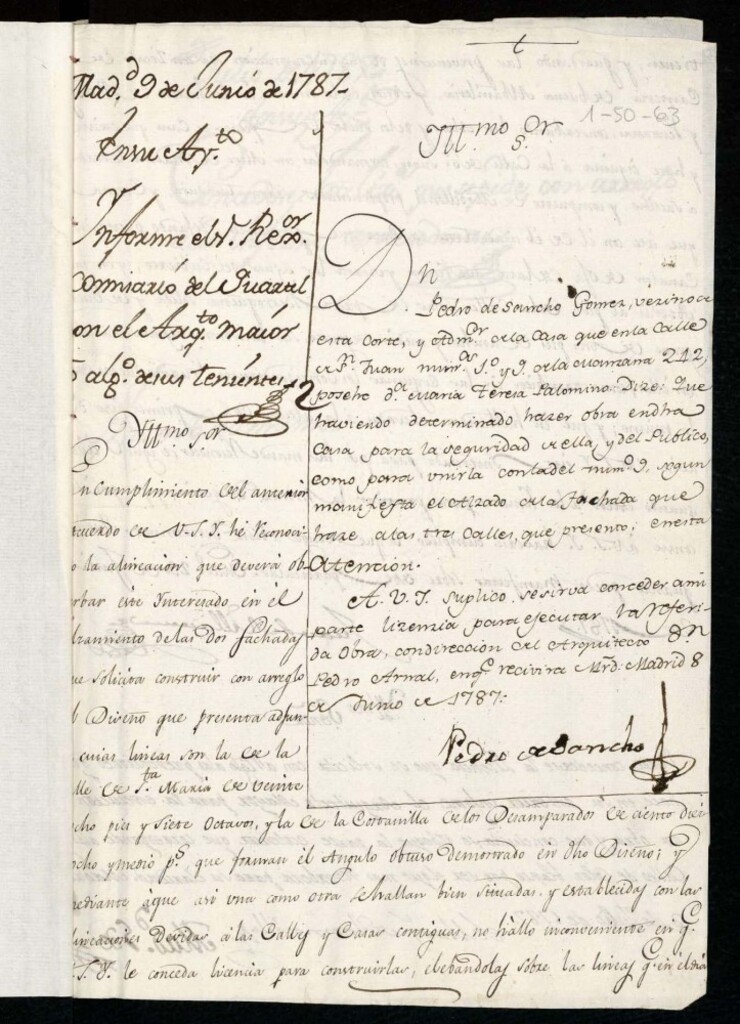 Mad.d 9 de Junio de 1787
En su Ay.to
Informe el S.r Rex.or
Comisario del Quartel
con el Arq.to maior
ó alg.o de sus tenientes
Yll.mo S.or
En cumplimiento del anterior
acuerdo de V.S.Y. hé reconoci-
do la alineacion que deverá ob-
serbar este Interesado en el
de las dos fachadas
que solicita construir con arreglo
Diseño que presenta adjun-
cuias lineas son la de la
calle de S.ta Maria de veinte
ocho pies y siete octavos, y la de la Costanilla de los Desamparados de ciento diez
ocho y medio p.s que forman el angulo obtuso demostrado en dho Diseño; y
mediante á que asi una como otra se hallan bien situadas y establecidas con las
alineaciones devidas á las Calles y Casas contiguas, no hallo inconveniente en q.e
V.S.Y. le conceda licencia para construirlas, elebandolas sobre las lineas q.e en el dia
†
1-50-63
Yll.mo S.or
Dn
Pedro de Sancho Gomez, vezino de
esta Corte, y Adm.or de la Casa que en la Calle
de S.n Juan num.os y 9. de la manzana 242,
posehe d.a Maria Teresa Palomino. Dize: Que
haviendo determinado hazer obra en dha
Casa para la seguridad de ella, y del Publico,
como para unirla con la del num.o 9. segun
manifiesta el Alzado de la Fachada que
haze a las tres Calles, que presento: en esta
Atencion.
A V.I. suplico se sirva conceder a mi
parte lizenzia para ejecutar la referi-
da Obra, con direccion del Arquitecto Dn
Pedro Arnal, en q.e recivira Mrd. Madrid 8
de Junio de 1787.
Pedro de Sancho